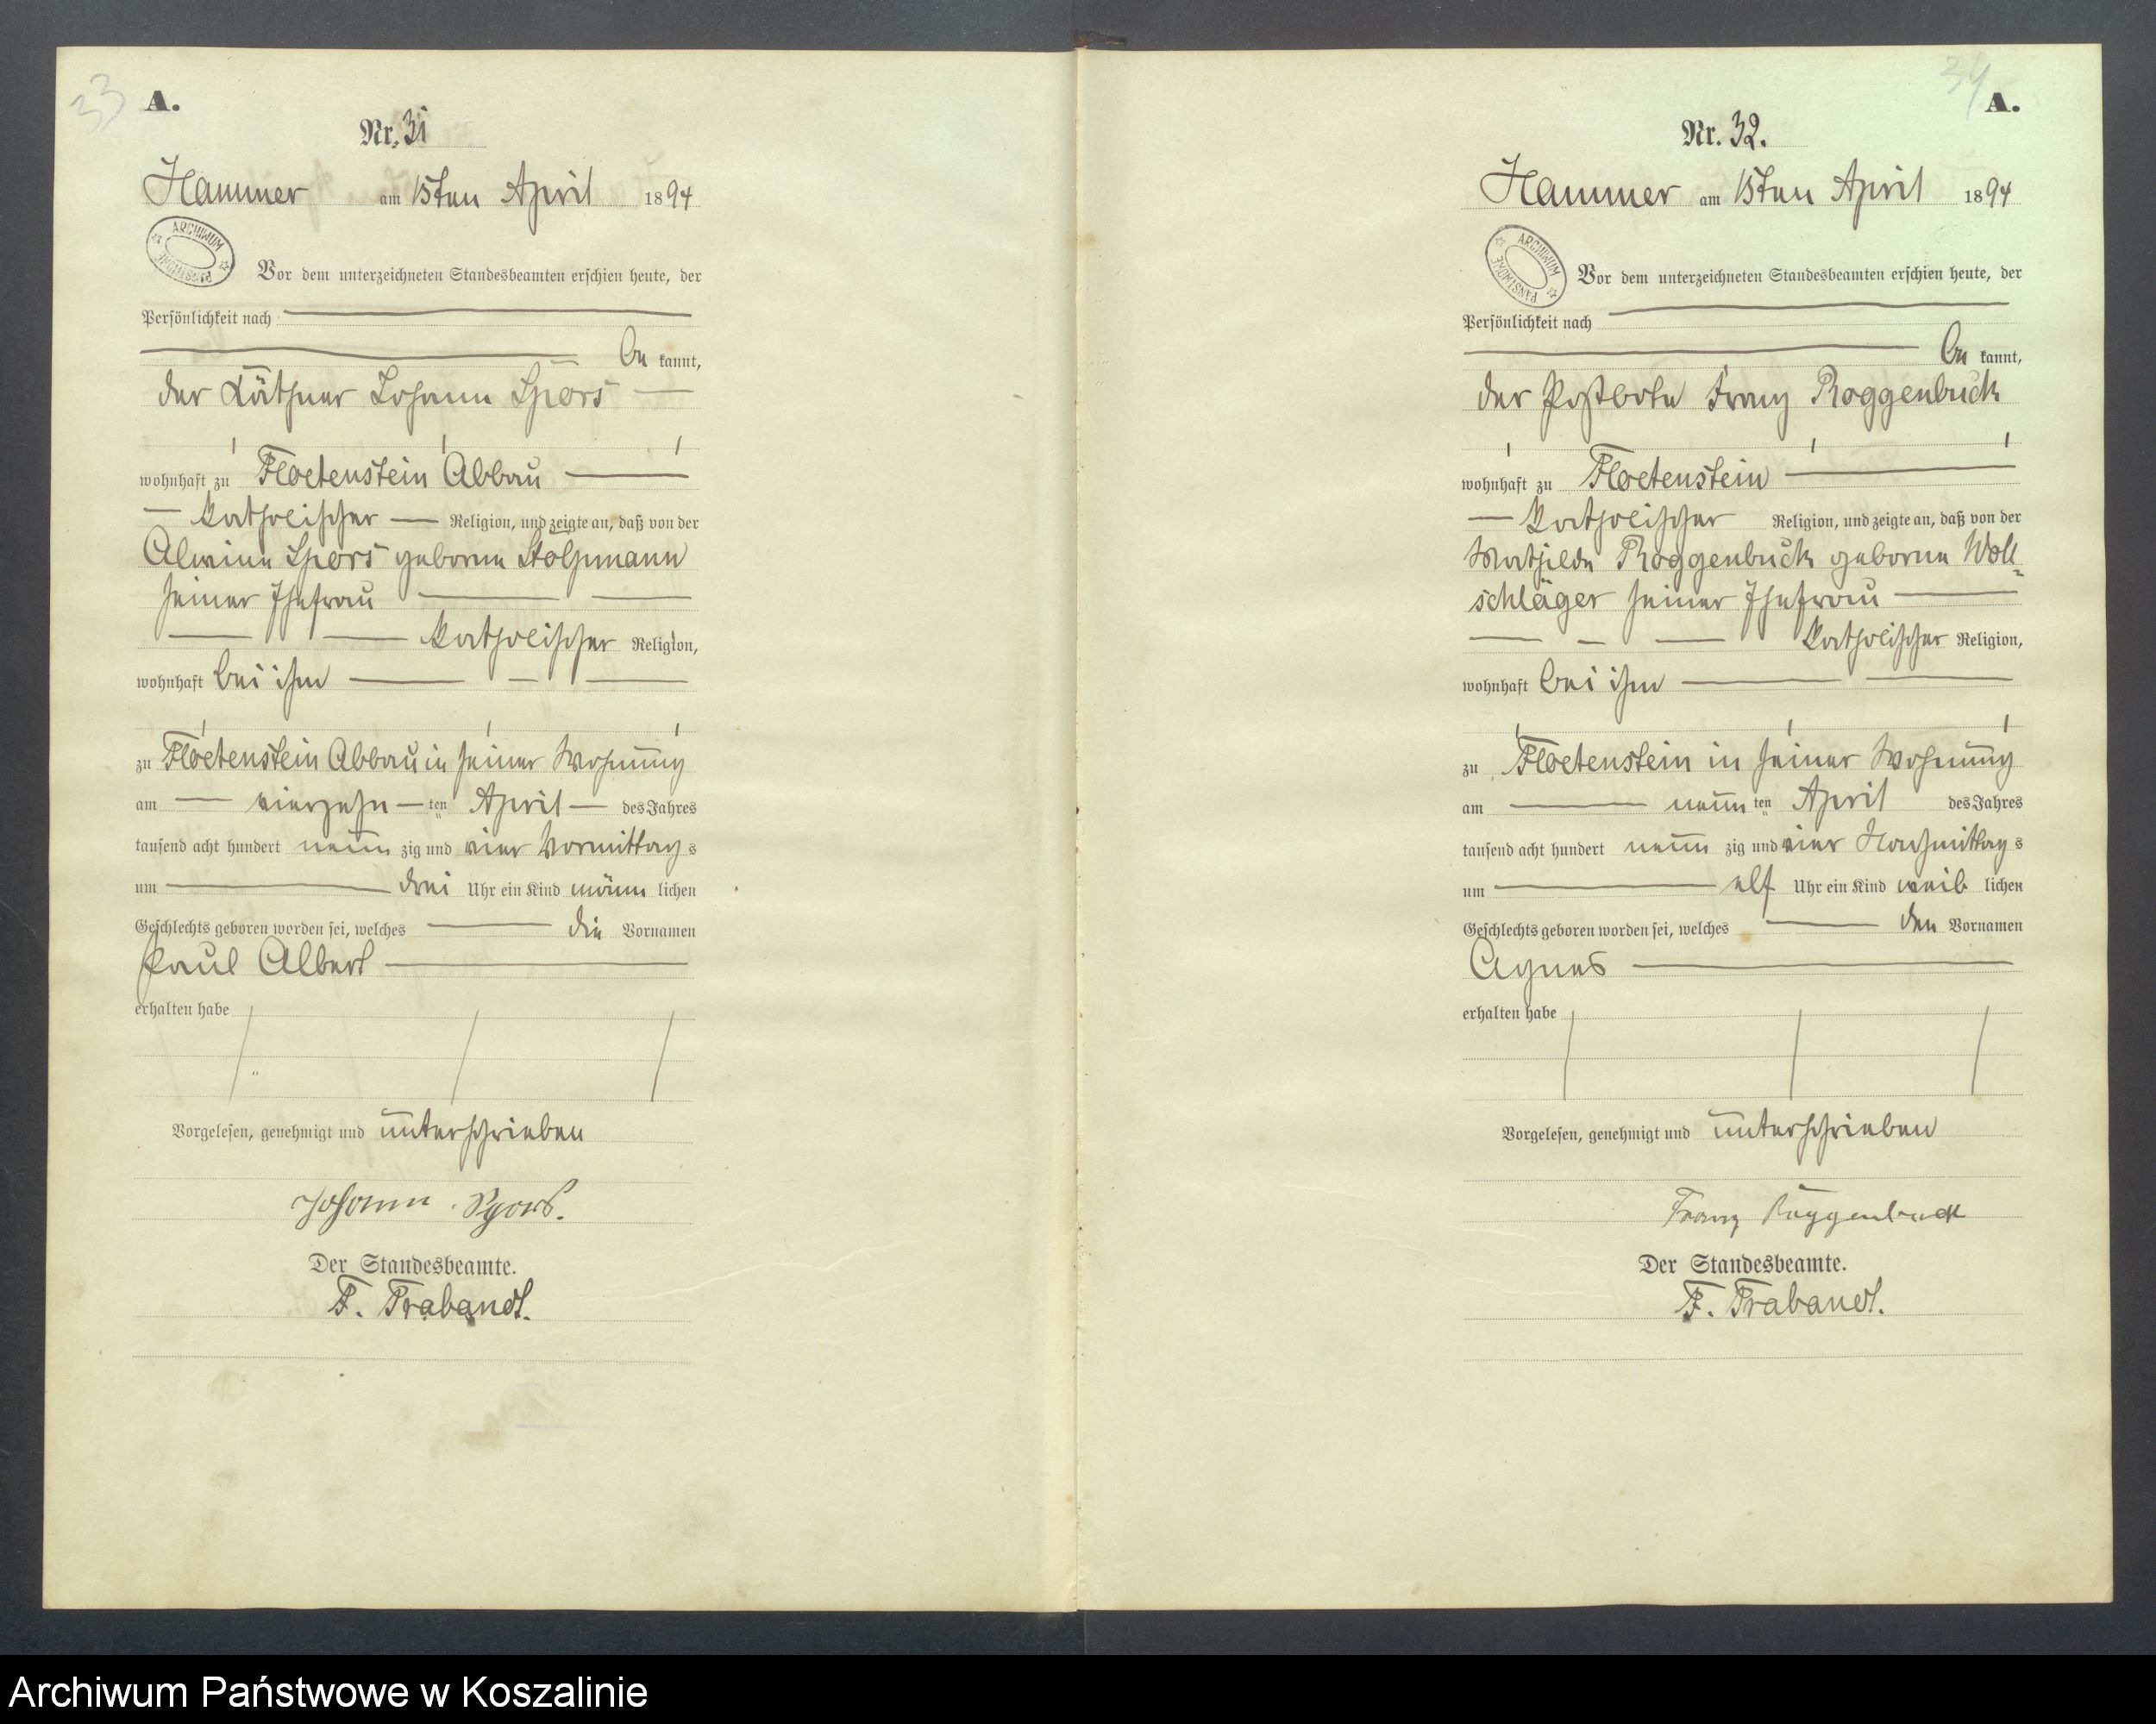 33
A.
Nr. 31
Hammer am 15ten April 1894
ARCHIWUM PAŃSTWOWE
Vor dem unterzeichneten Standesbeamten erschien heute, der
Persönlichkeit nach
be kannt,
der Käthner Johann Spors
wohnhaft zu Floetenstein Abbau
katholischer Religion, und zeigte an, daß von der
Alwine Spors geborne Stolpmann
seiner Ehefrau
katholischer Religion,
wohnhaft bei ihm
zu Floetenstein Abbau in seiner Wohnung
am vierzehn ten April des Jahres
tausend acht hundert neun zig und vier Vormittag s
um drei Uhr ein Kind männ lichen
Geschlechts geboren worden sei, welches die Vornamen
Paul Albert
erhalten habe
Vorgelesen, genehmigt und unterschrieben
Johann Spors.
Der Standesbeamte.
F. Trabandt.
34
A.
Nr. 32.
Hammer am 15ten April 1894
ARCHIWUM PAŃSTWOWE
Vor dem unterzeichneten Standesbeamten erschien heute, der
Persönlichkeit nach
be kannt,
der Postbote Franz Roggenbuck
wohnhaft zu Floetenstein
katholischer Religion, und zeigte an, daß von der
Mathilde Roggenbuck geborne Woll=
schläger seiner Ehefrau
katholischer Religion,
wohnhaft bei ihm
zu Floetenstein in seiner Wohnung
am neun ten April des Jahres
tausend acht hundert neun zig und vier Nachmittag s
um elf Uhr ein Kind weib lichen
Geschlechts geboren worden sei, welches den Vornamen
Agnes
erhalten habe
Vorgelesen, genehmigt und unterschrieben
Franz Roggenbuck
Der Standesbeamte.
F. Trabandt.
Archiwum Państwowe w Koszalinie